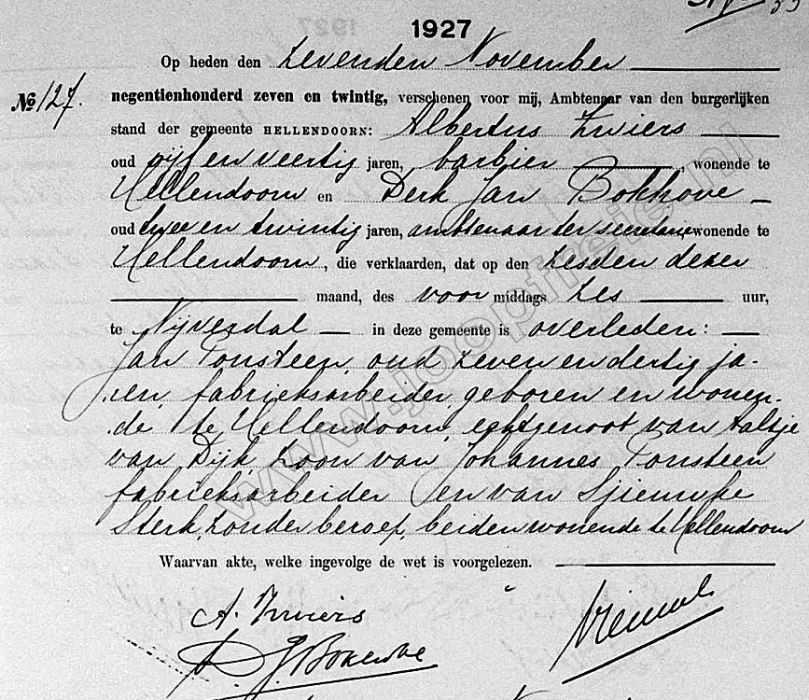 1927
Op heden den zevenden November
No 127.
negentienhonderd zeven en twintig, verschenen voor mij, Ambtenaar van den burgerlijken
stand der gemeente HELLENDOORN: Albertus Zwiers
oud vijf en veertig jaren, barbier, wonende te
Hellendoorn en Derk Jan Bokhove
oud twee en twintig jaren, ambtenaar ter secretarie, wonende te
Hellendoorn, die verklaarden, dat op den zesden dezer
maand, des voor middags zes uur,
te Nijverdal in deze gemeente is overleden:
Jan Ponsteen, oud zeven en dertig ja-
ren, fabrieksarbeider, geboren en wonen-
de te Hellendoorn, echtgenoot van Aaltje
van Dijk, zoon van Johannes Ponsteen
fabrieksarbeider en van Sjiempke
Sterk, zonder beroep, beiden wonende te Hellendoorn
Waarvan akte, welke ingevolge de wet is voorgelezen.
A. Zwiers
D J Bokhove
www.jooptreie.nl